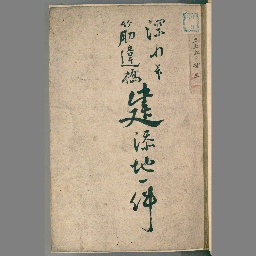 深川并
筋違橋
建添地一件